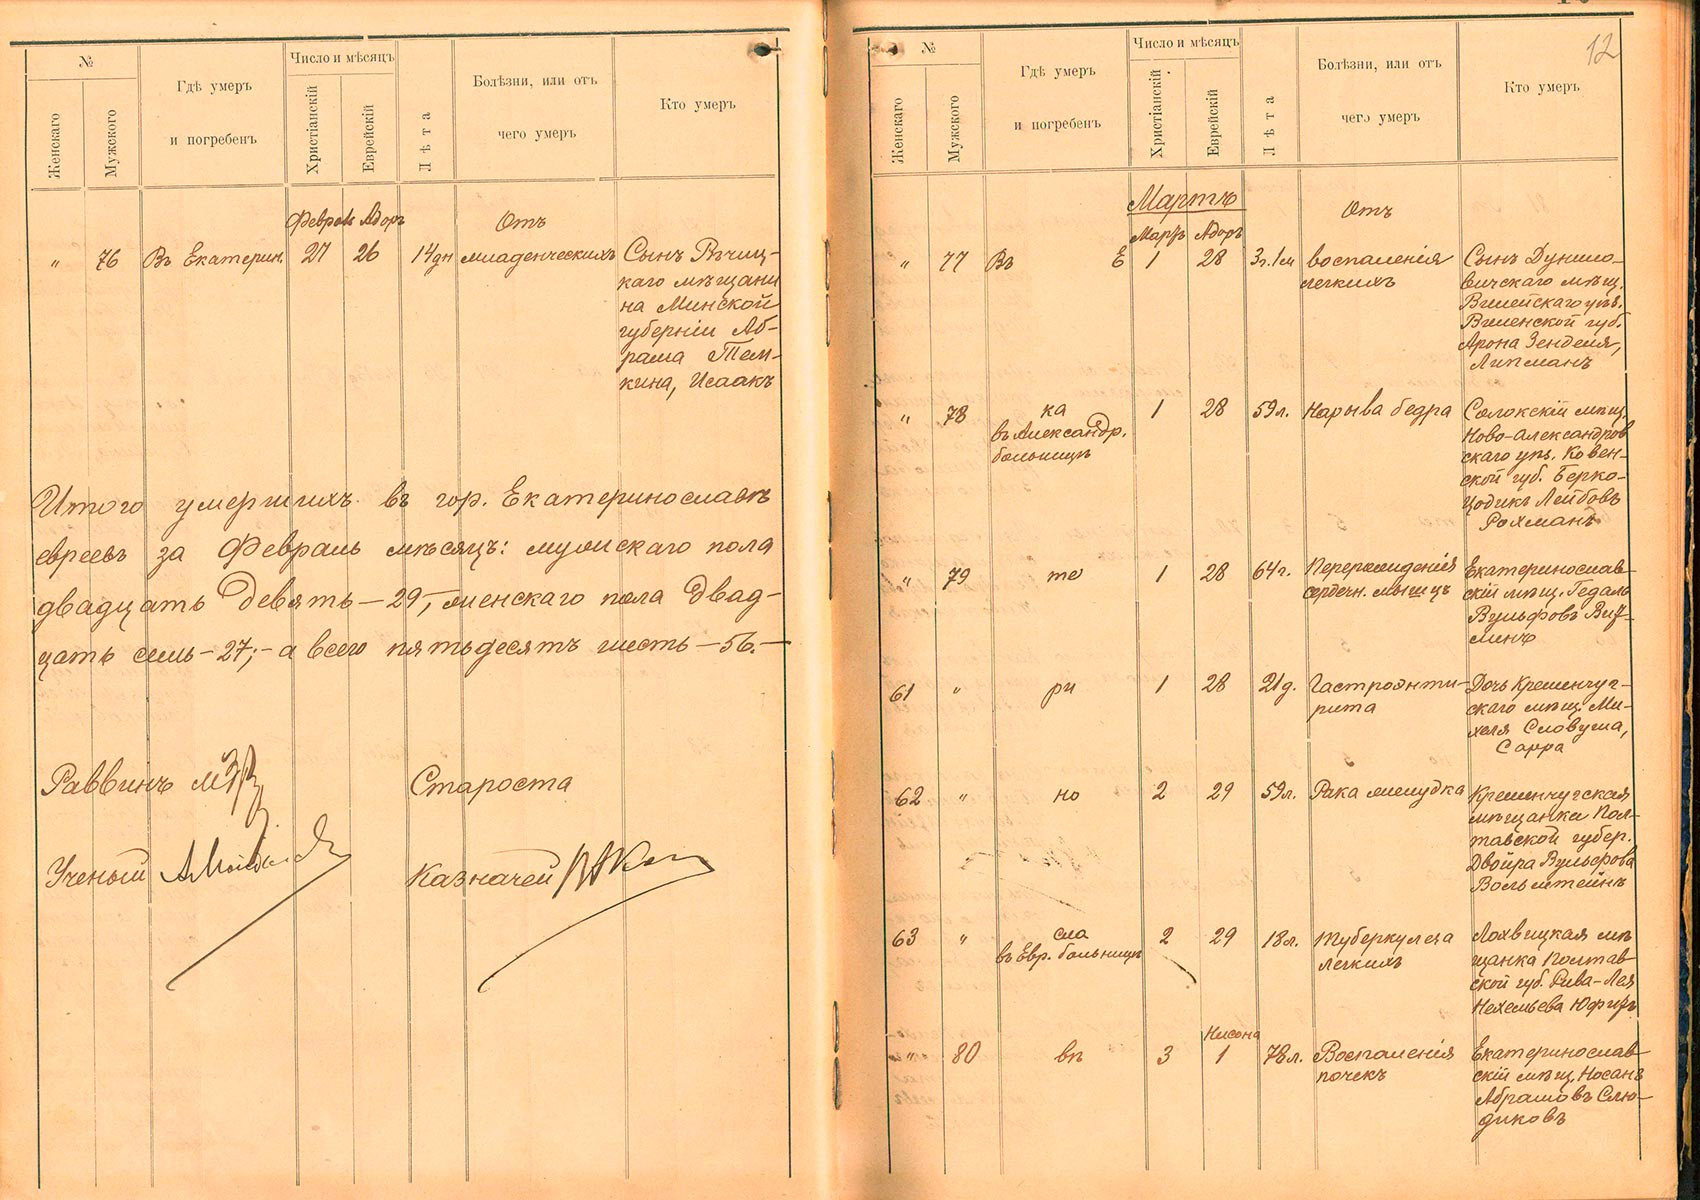 №
Женскаго
Мужского
Гдѣ умеръ
и погребенъ
Число и мѣсяцъ
Христіанскій
Еврейскій
Лѣта
Болѣзни, или отъ
чего умеръ
Кто умеръ
Феврал Адоръ
Отъ
" 76 Въ Екатерин. 27 26 14 дн младенческихъ
Сынъ Рѣчиц-
каго мѣщани
на Минской
губерніи Аб-
рама Тем-
кина, Исаакъ
Итого умершихъ въ гор. Екатеринославѣ
евреевъ за Февраль мѣсяцъ: мужскаго пола
двадцать девять — 29, женскаго пола двад-
цать семь — 27; — а всего пятьдесятъ шесть — 56. —
Раввинъ
Староста
Ученый
Казначей
12
№
Женскаго
Мужского
Гдѣ умеръ
и погребенъ
Число и мѣсяцъ
Христіанскій
Еврейскій
Лѣта
Болѣзни, или отъ
чего умеръ
Кто умеръ
Мартъ
Отъ
Мартъ Адоръ
" 77 Въ Е 1 28 3г. 1м воспаленія
легкихъ
Сынъ Дунило-
вичскаго мѣщ.
Вилейскаго уѣз.
Виленской губ.
Арона Зенделя,
Липманъ
" 78 ка 1 28 59л. Нарыва бедра
въ Александр.
больницѣ
Солокскій мѣщ.
Ново-Александров
скаго уѣз. Ковен-
ской губ. Берко-
Цодикъ Лейбовъ
Рохманъ
" 79 те 1 28 64г. Перерожденія
сердечн. мышцъ
Екатеринослав-
скій мѣщ. Гедаль
Вульфовъ
61 " ри 1 28 21д. Гастроэнти-
рита
Дочь Кременчуг-
скаго мѣщ. Ми-
хеля Словуша,
Сарра
62 " но 2 29 59л. Рака желудка
Кременчугская
мѣщанка Пол-
тавской губер.
Двойра Вульфова
Вольштейнъ
63 " сла 2 29 18л. Туберкулеза
легкихъ
въ Евр. больницѣ
Лохвицкая мѣ
щанка Полтав
ской губ. Рива-Лея
Нехемьева
Нисона
" 80 вѣ 3 1 78л. Воспаленія
почекъ
Екатеринослав-
скій мѣщ. Носанъ
Абрамовъ Слю-
диковъ